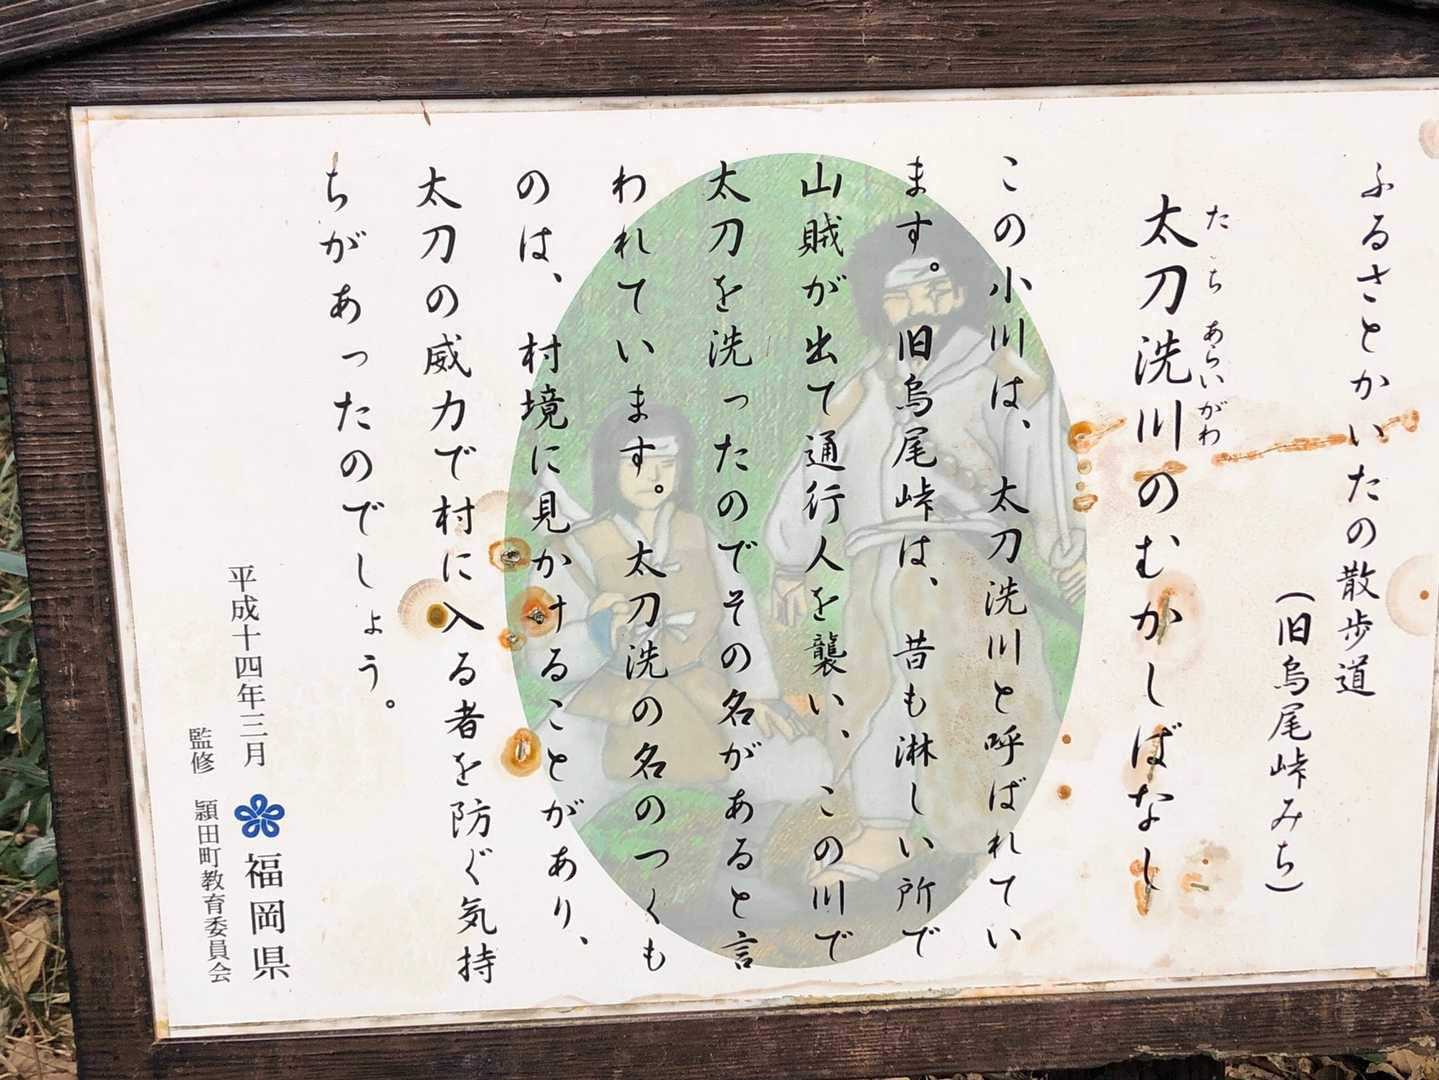 ふるさとかいたの散歩道
(旧烏尾峠みち)
太刀洗川のむかしばなし
たち あらいがわ
この小川は、太刀洗川と呼ばれてい
ます。旧烏尾峠は、昔も淋しい所で
山賊が出て通行人を襲い、この川で
太刀を洗ったのでその名があると言
われています。太刀洗の名のつくも
のは、村境に見かけることがあり、
太刀の威力で村に入る者を防ぐ気持
ちがあったのでしょう。
平成十四年三月
福岡県
監修 頴田町教育委員会